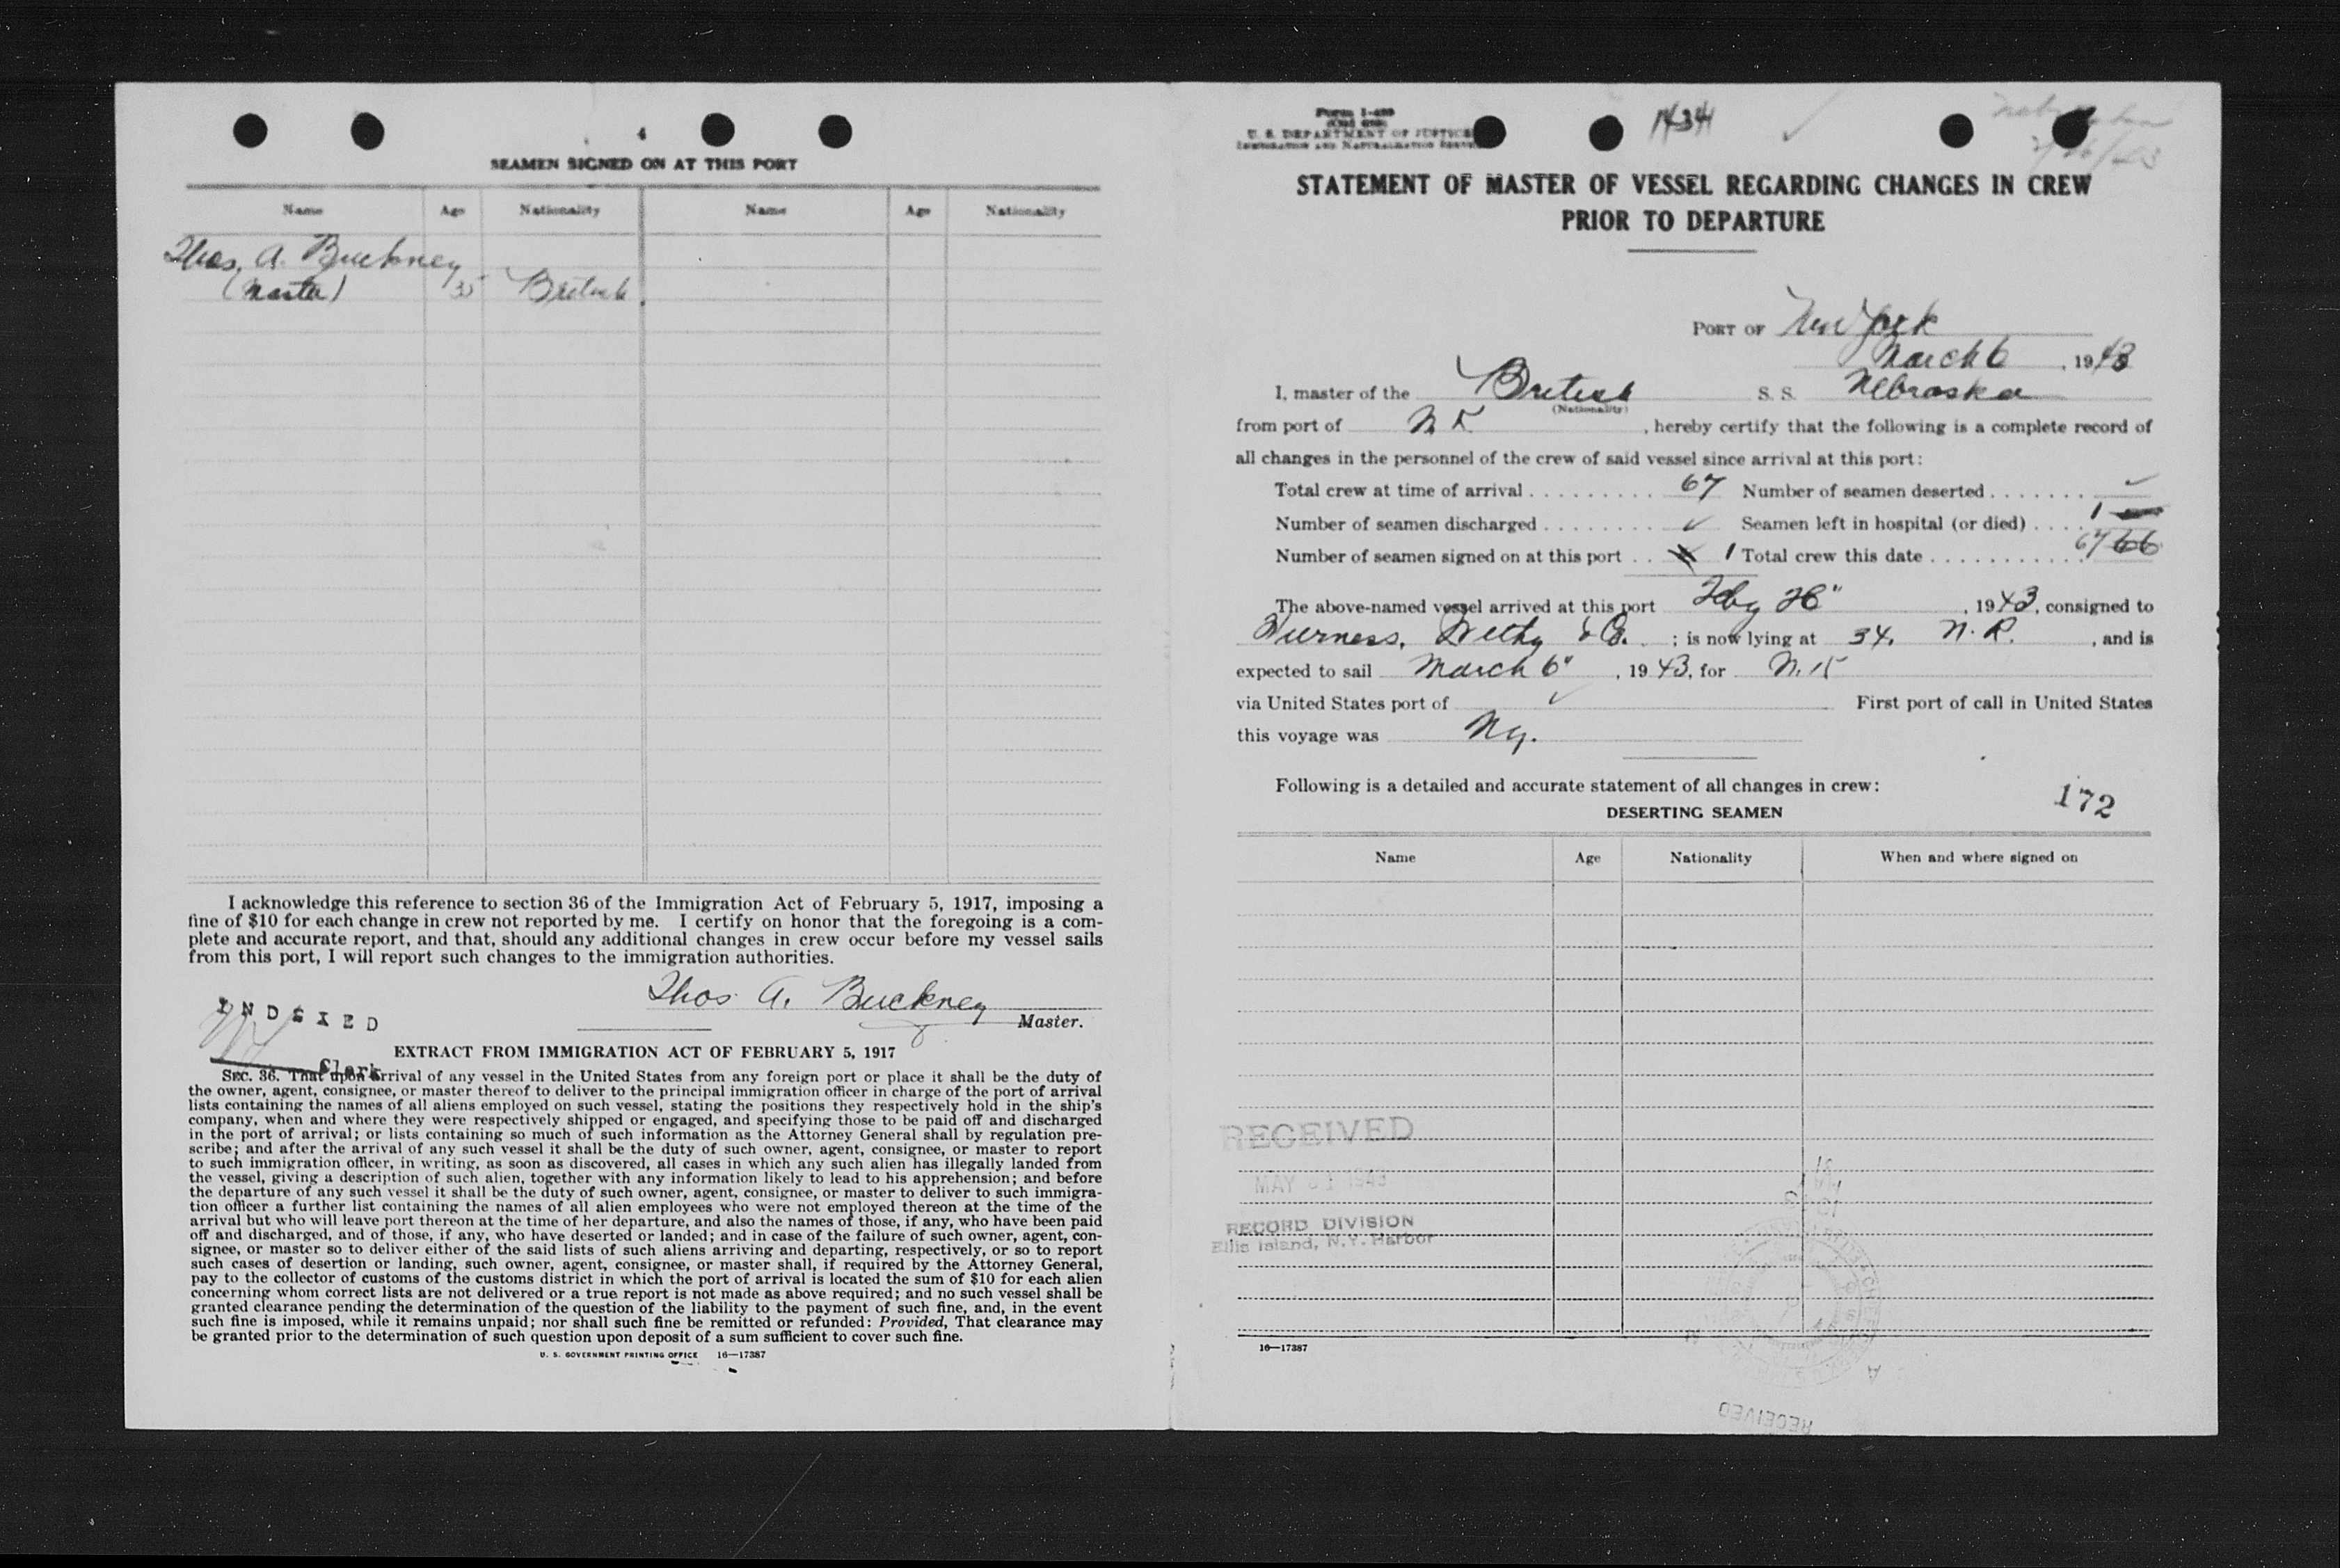 4
SEAMEN SIGNED ON AT THIS PORT
Name Age Nationality Name Age Nationality
Thos. A. Buckney
(Master) 35 British.
I acknowledge this reference to section 36 of the Immigration Act of February 5, 1917, imposing a
fine of $10 for each change in crew not reported by me. I certify on honor that the foregoing is a com-
plete and accurate report, and that, should any additional changes in crew occur before my vessel sails
from this port, I will report such changes to the immigration authorities.
Thos. A. Buckney
Master.
INDEXED
Clerk
EXTRACT FROM IMMIGRATION ACT OF FEBRUARY 5, 1917
SEC. 36. That upon arrival of any vessel in the United States from any foreign port or place it shall be the duty of
the owner, agent, consignee, or master thereof to deliver to the principal immigration officer in charge of the port of arrival
lists containing the names of all aliens employed on such vessel, stating the positions they respectively hold in the ship's
company, when and where they were respectively shipped or engaged, and specifying those to be paid off and discharged
in the port of arrival; or lists containing so much of such information as the Attorney General shall by regulation pre-
scribe; and after the arrival of any such vessel it shall be the duty of such owner, agent, consignee, or master to report
to such immigration officer, in writing, as soon as discovered, all cases in which any such alien has illegally landed from
the vessel, giving a description of such alien, together with any information likely to lead to his apprehension; and before
the departure of any such vessel it shall be the duty of such owner, agent, consignee, or master to deliver to such immigra-
tion officer a further list containing the names of all alien employees who were not employed thereon at the time of the
arrival but who will leave port thereon at the time of her departure, and also the names of those, if any, who have been paid
off and discharged, and of those, if any, who have deserted or landed; and in case of the failure of such owner, agent, con-
signee, or master so to deliver either of the said lists of such aliens arriving and departing, respectively, or so to report
such cases of desertion or landing, such owner, agent, consignee, or master shall, if required by the Attorney General,
pay to the collector of customs of the customs district in which the port of arrival is located the sum of $10 for each alien
concerning whom correct lists are not delivered or a true report is not made as above required; and no such vessel shall be
granted clearance pending the determination of the question of the liability to the payment of such fine, and, in the event
such fine is imposed, while it remains unpaid; nor shall such fine be remitted or refunded: Provided, That clearance may
be granted prior to the determination of such question upon deposit of a sum sufficient to cover such fine.
U. S. GOVERNMENT PRINTING OFFICE 16—17387
U. S. DEPARTMENT OF JUSTICE
IMMIGRATION AND NATURALIZATION
1434
STATEMENT OF MASTER OF VESSEL REGARDING CHANGES IN CREW
PRIOR TO DEPARTURE
PORT OF New York
March 6, 1943
I, master of the British S. S. Nebraska
(Nationality)
from port of , hereby certify that the following is a complete record of
all changes in the personnel of the crew of said vessel since arrival at this port:
Total crew at time of arrival 67 Number of seamen deserted ✓
Number of seamen discharged ✓ Seamen left in hospital (or died) 1
Number of seamen signed on at this port 1 Total crew this date 67 66
The above-named vessel arrived at this port Feby , 1943, consigned to
Furness, Withy & Co. ; is now lying at 34. N. R. , and is
expected to sail March 6" , 1943, for
via United States port of ✓ First port of call in United States
this voyage was NY.
Following is a detailed and accurate statement of all changes in crew:
172
DESERTING SEAMEN
Name Age Nationality When and where signed on
RECEIVED
MAY 1943
RECORD DIVISION
Ellis Island, N.Y. Harbor
16—17387
RECEIVED